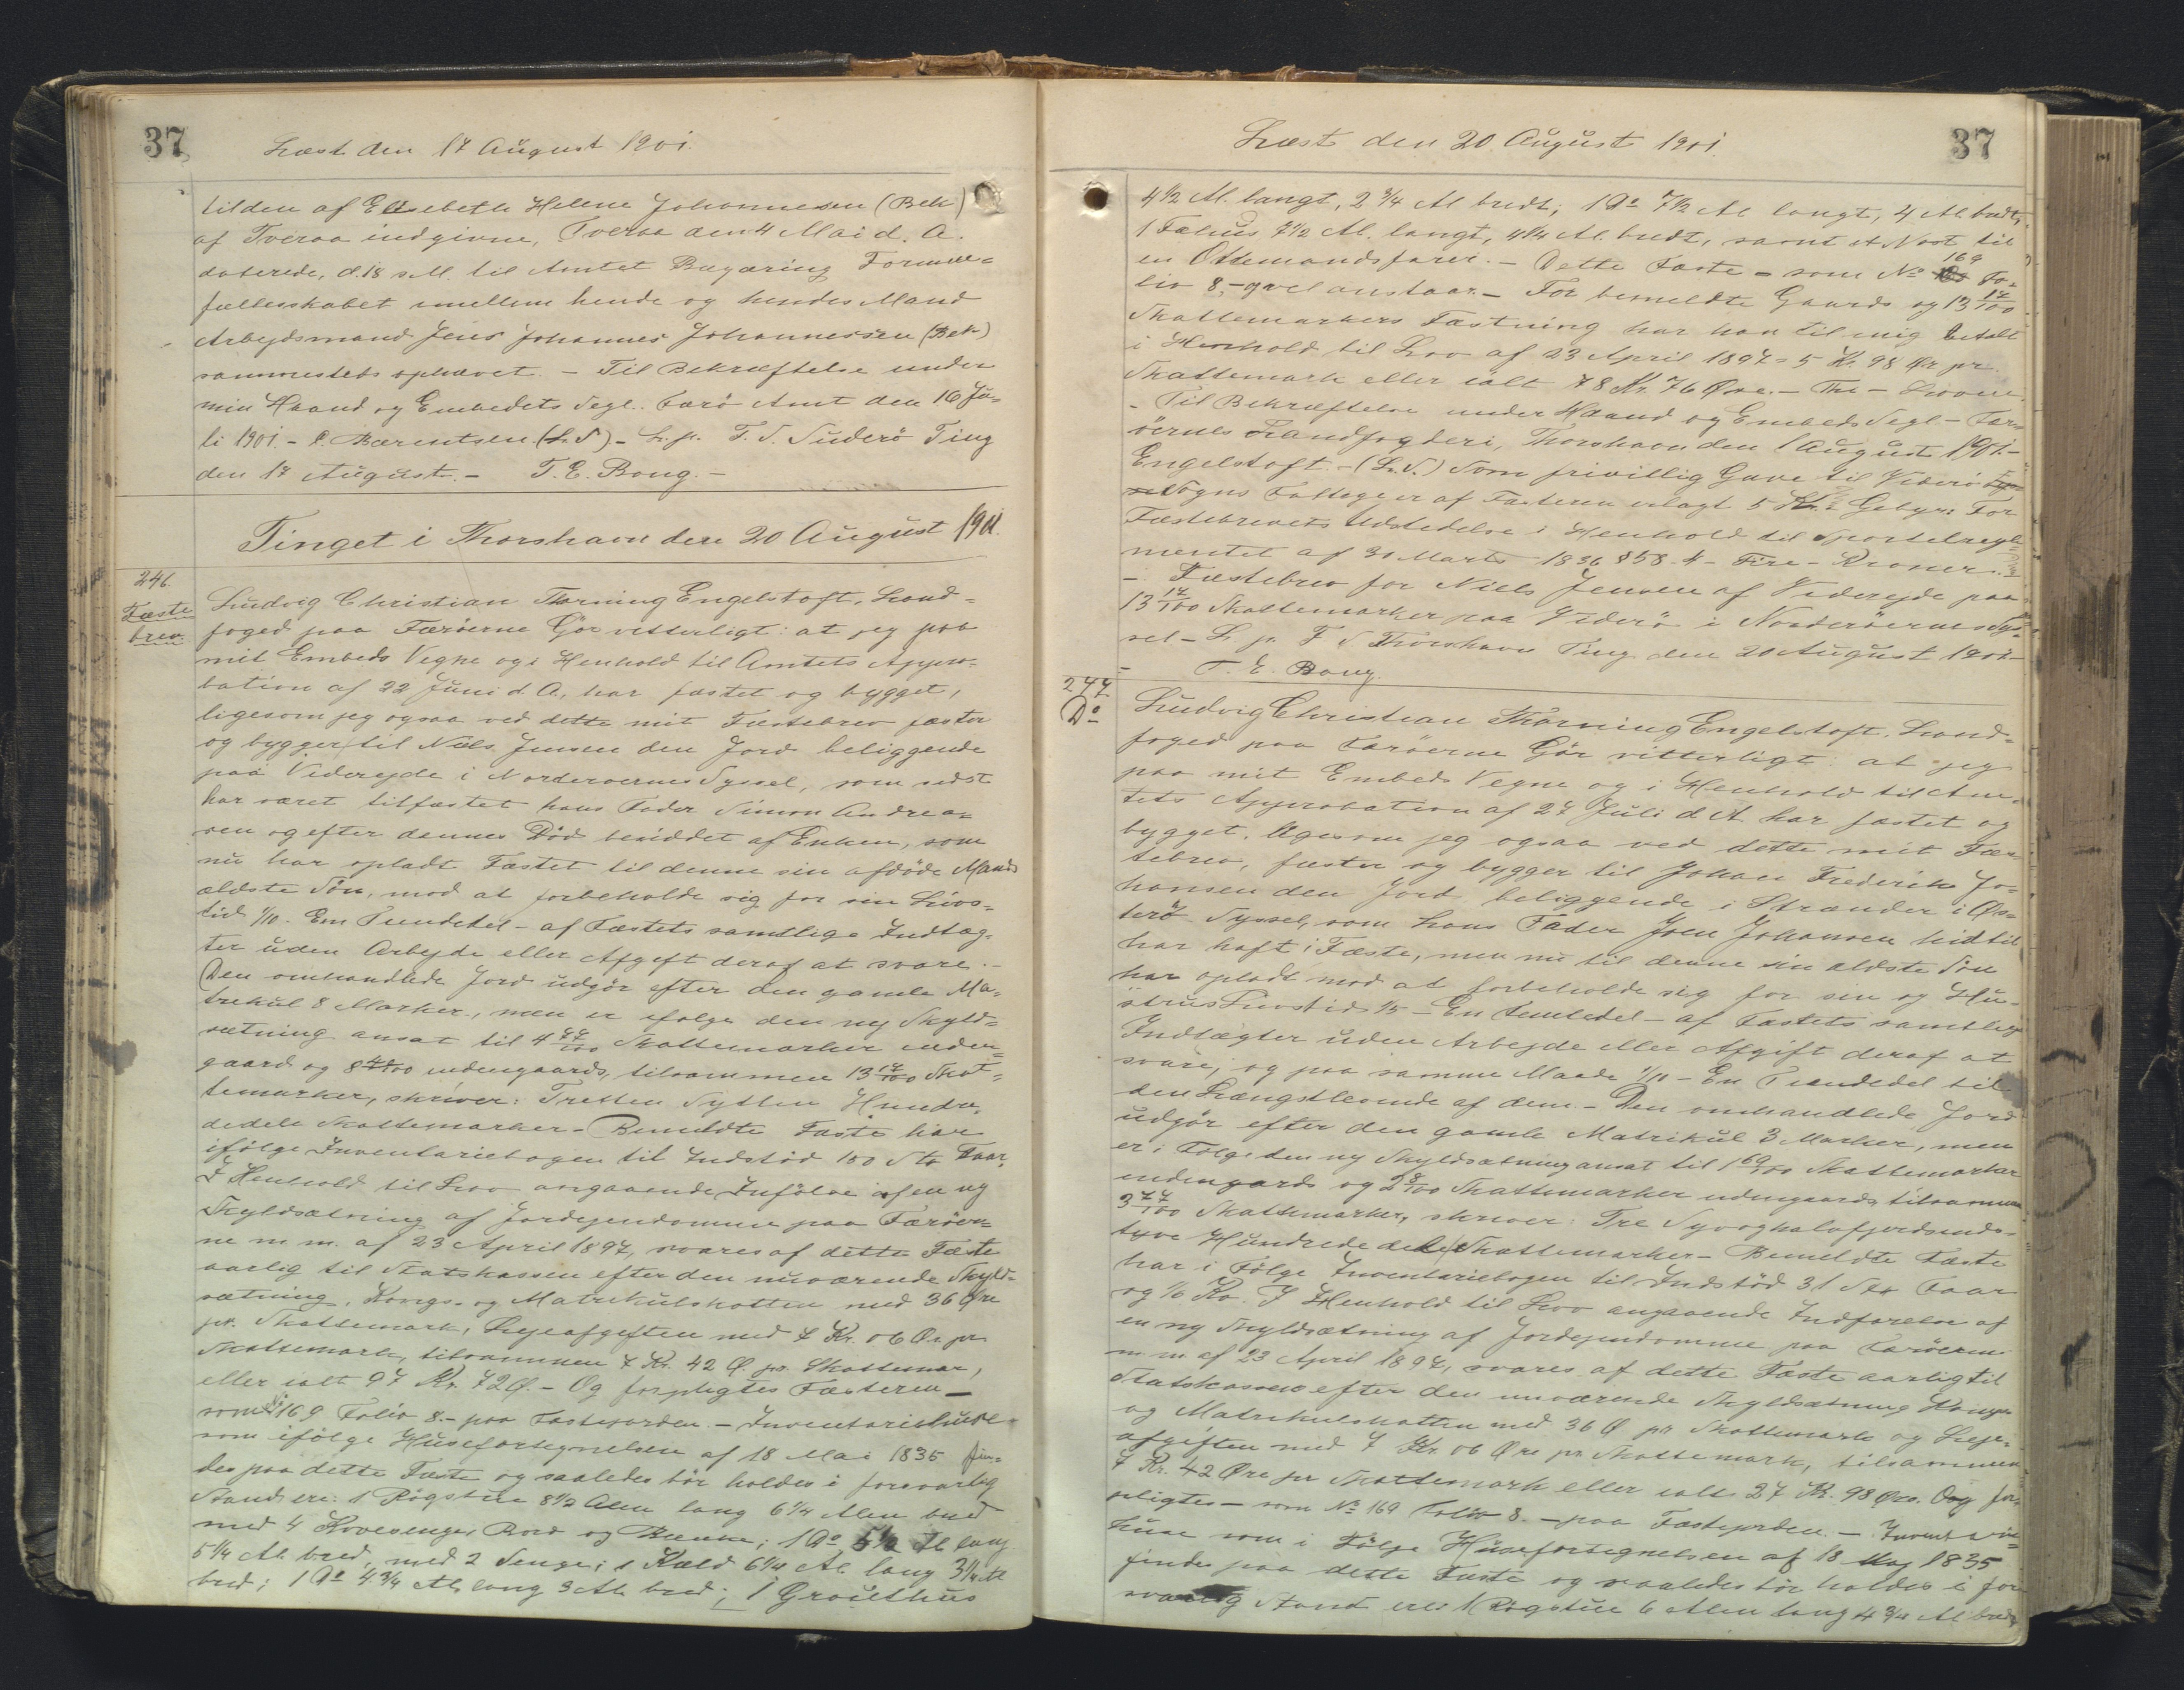 37
Læst den 17 August 1901.
tilden af Ellsebeth Helene Johannesen (Bek)
af Tveraa indgivne, Tveraa den 4 Mai d. A.
daterede, d. 18 s.M. til Amtet Begæring Formue=
fællesskabet imellem hende og hendes Mand
Arbejdsmand Jens Johannes Johannessen (Bek)
sammestets ophævet. – Til Bekræftelse under
min Haand og Embedets Segl. Færø Amt den 16 Ju=
li 1901. – C. Bærentsen (L.S) – L. p. F. S. Suderø Ting
den 17 August. – T. E. Bang. –
Tinget i Thorshavn den 20 August 1901.
246.
Fæste
brev.
Ludvig Christian Thorning Engelstoft, Land=
foged paa Færøerne Gör vitterligt: at jeg paa
mit Embeds Vegne og i Henhold til Amtets Appro=
bation af 22 Juni d. A., har fæstet og bygget,
ligesom jeg ogsaa ved dette mit Fæstebrev fæster
og bygger til Niels Jensen den Jord beliggende
paa Viderejde i Norderöernes Syssel, som sidst
har været tilfæstet hans Fader Simon Andrea=
sen og efter dennes Död besiddet af Enken, som
nu har opladt Fæstet til denne sin afdöde Mands
ældste Sön, mod at forbeholde sig for sin Livs=
tid 1/10 – Een Tiendedel – af Fæstets samtlige Indtæg=
ter uden Arbejde eller Afgift deraf at svare. –
Den omhandlede Jord udgör efter den gamle Ma=
trikul 8 Marker, men er ifølge den ny Skyld=
sætning ansat til 4 77/100 Skattemarker inden=
gaards og 8 40/100 udengaards, tilsammen 13 17/100 Skat=
temarker, skriver: Tretten Sytten Hundre=
dedele Skattemarker – Bemeldte Fæste har
ifölge Inventariebogen til Indstöd 180 Stk Faar.
I Henhold til Lov angaaende Indförelse af en ny
Skyldsætning af Jordejendomme paa Færöer=
ne m. m. af 23 April 1897, svares af dette Fæste
aarlig til Statskassen efter den nuværende Skyld=
sætning, Konge- og Matrikulskatten med 36 Øre
pr. Skattemark, Lejeafgiften med 7 Kr. 06 Ør. pr.
Skattemark, tilsammen 7 Kr. 42 Ø. pr. Skattemar,
eller ialt 97 Kr. 72 Ø. – Og forpligtes Fæsteren –
som № 169 Folio 8. – paa Fæstejorden. – Inventariehuse
som ifölge Husefortegnelsen af 18 Mai 1835 fin=
des paa dette Fæste og saaledes bör holdes i forsvarlig
Stand ere: 1 Rögstue 8 1/2 Alen lang 6 1/4 Alen bred
med 4 Kovesenge, Bord og Bænke; 1 Do 5 1/2 Al lang
5 1/4 Al. bred, med 2 Senge; 1 Kæld 6 1/4 Al. lang 3 1/4 Al
bred; 1 Do 4 3/4 Al. lang 3 Al. bred; 1 Grouthus
Læst den 20. August 1901.
37
4 1/2 Al. langt, 2 3/4 Al bredt; 1 Do 7 1/2 Al langt, 4 Al. bredt,
1 Fæhus 7 1/2 Al. langt, 4 1/4 Al. bredt, samt et Nost til
en Ottemandsfarer. – Dette Fæste – som № 169 Fo=
lio 8, – og vel anstaar. – For bemeldte Gaards og 13 17/100
Skattemarkers Fæstning har han til mig betalt
i Henhold til Lov af 23 April 1897 = 5 Kr. 98 Ør. pr.
Skattemark eller ialt 78 Kr. 76 Øre. – Thi – Loven.
– Til Bekræftelse under Haand og Embeds Segl – Fær=
öernes Landfogderi, Thorshavn den 1 August 1901. –
Engelstoft. – (L. S.) Som frivillig Gave til Viderö
Sogns Fattige er af Fæsteren erlagt 5 Kr. – Gebyr: For
Fæstebrevets Udstedelse i Henhold til Sportelregle=
mentet af 30 Marts 1836 § 58. 4 – Fire – Kroner.
– Fæstebrev for Niels Jensen af Viderejde paa
13 17/100 Skattemarker paa Viderö i Norderöernes Sys=
sel – L. p. F. S Thorshavn Ting den 20 August 1901 –
– T. E. Bang.
247
Do
Ludvig Christian Thorning Engelstoft, Land=
foged paa Færöerne Gör vitterligt: at jeg
paa mit Embeds Vegne og i Henhold til Am=
tets Approbation af 27 Juli d A har fæstet og
bygget, ligesom jeg ogsaa ved dette mit Fæs=
tebrev, fæster og bygger til Johan Frederik Jo=
hansen den Jord beliggende i Strænder i Øs=
terö Syssel, som hans Fader Joen Johansen hidtil
har haft i Fæste, men nu til denne sin ældste Sön
har opladt mod at forbeholde sig for sin og Hu=
strus Livstid 1/5 – En Femtedel – af Fæstets samtlige
Indtægter uden Arbejde eller Afgift deraf at
svare, og paa samme Maade 1/10 – En Tiendedel til
den Længstlevende af dem. – Den omhandlede Jord
udgör efter den gamle Matrikul 3 Marker, men
er i Fölge den ny Skyldsætning ansat til 1 69/100 Skattemarker
indengaards og 2 8/100 Skattemarker udengaards, tilsammen
3 77/100 Skattemarker, skriver: Tre Syvoghalvfjerdsinds=
tyve Hundrededele Skattemarker – Bemeldte Fæste
har i Fölge Inventariebogen til Indstöd 31 Stk Faar
og 1/6 Ko. I Henhold til Lov angaaende Indförelse af
en ny Skyldsætning af Jordejendomme paa Færöerne
m m af 23 April 1897, svares af dette Fæste aarlig til
Statskassen efter den nuværende Skyldsætning Konge
og Matrikulskatten med 36 Ø pr Skattemark og Leje=
afgiften med 7 Kr. 06 Øre pr. Skattemark, tilsammen
7 Kr. 42 Øre pr Skattemark eller ialt 27 Kr. 98 Øre. Og for=
pligtes – som № 169 Folio 8. – paa Fæstejorden. – Inventarie=
huse som i Fölge Husefortegnelsen af 18 Maj 1835
findes paa dette Fæste og saaledes bör holdes i for=
svarlig Stand ere: 1 Rögstue 6 Alen lang 4 3/4 Al. bred